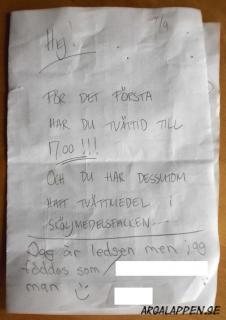 7/9
Hej!
FÖR DET FÖRSTA
HAR DU TVÄTTID TILL
1700 !!!
OCH DU HAR DESSUTOM
HAFT TVÄTTMEDEL I
SKÖLJMEDELSFACKEN...
Jag är ledsen men jag
föddes som
man
ARGALAPPEN.SE